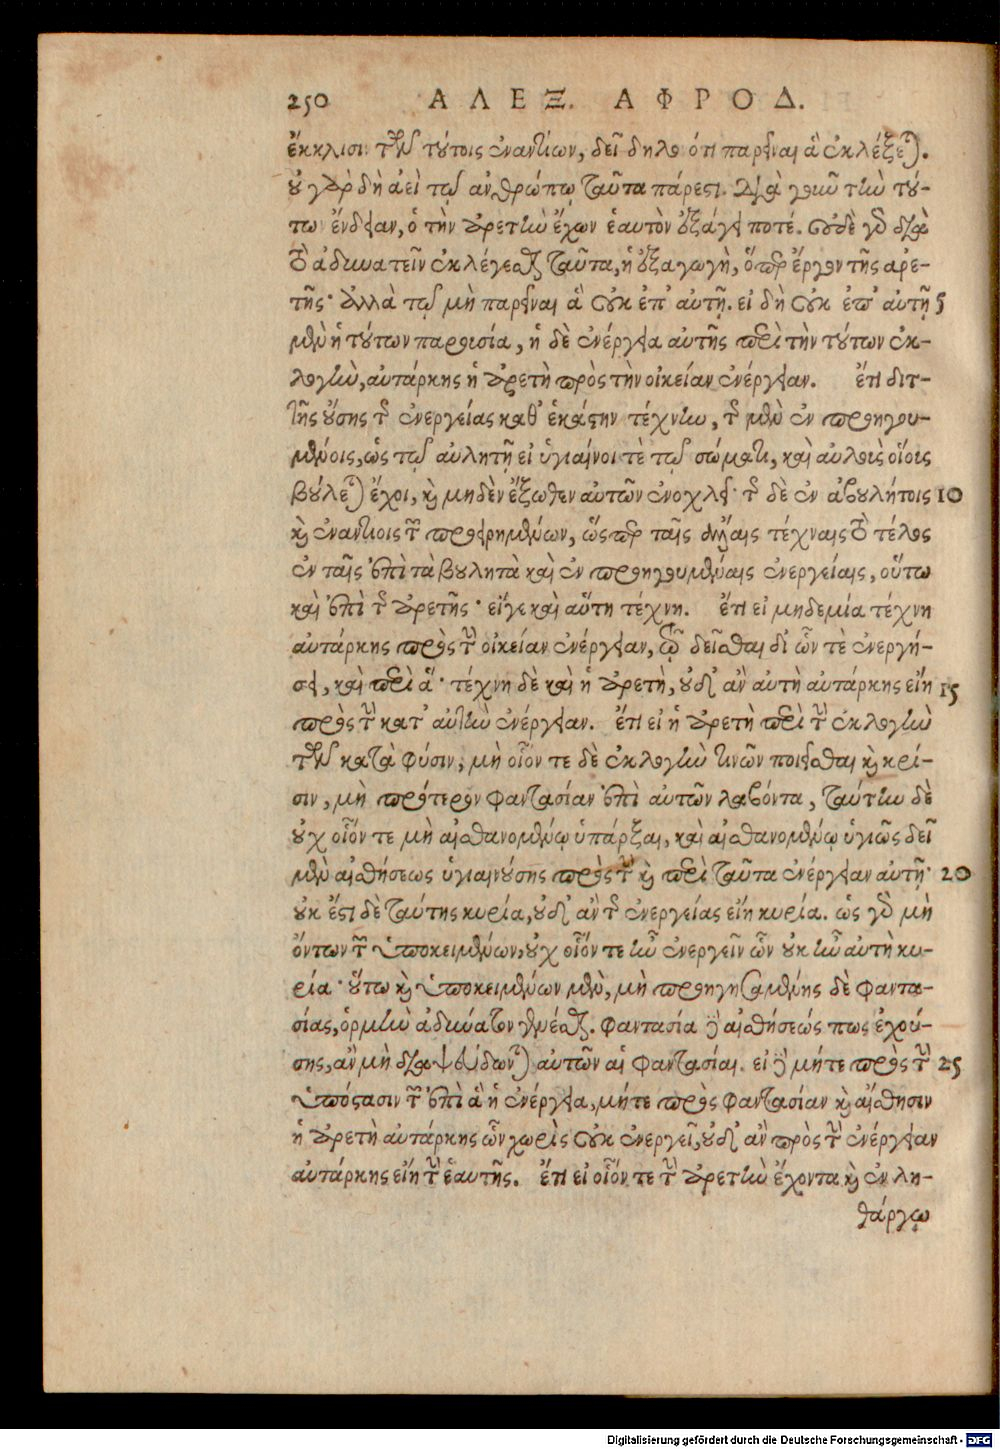 250 ΑΛΕΞ. ΑΦΡΟΔ.
ἔκκλισις τῶν τούτοις ἐναντίων, δεῖ δηλονότι παρεῖναι ἃ ἐκλέξεται.
οὐ γὰρ δὴ ἀεὶ τῷ ἀνθρώπῳ ταῦτα πάρεστι. διὰ γοῦν τὴν τού-
των ἔνδειαν, ὁ τὴν ἀρετὴν ἔχων ἑαυτὸν ἐξάγει ποτέ. οὐδὲ γὰρ διὰ
τὸ ἀδυνατεῖν ἐκλέγεσθαι ταῦτα, ἡ ἐξαγωγὴ, ὅπερ ἔργον τῆς ἀρε-
τῆς· ἀλλὰ τῷ μὴ παρεῖναι ἃ οὐκ ἐπ' αὐτῇ. εἰ δὴ οὐκ ἐπ' αὐτῇ 5
μὲν ἡ τούτων παρουσία, ἡ δὲ ἐνέργεια αὐτῆς περὶ τὴν τούτων ἐκ-
λογὴν, αὐτάρκης ἡ ἀρετὴ πρὸς τὴν οἰκείαν ἐνέργειαν. ἔτι διτ-
τῆς οὔσης τῆς ἐνεργείας καθ' ἑκάστην τέχνην, τῆς μὲν ἐν προηγου-
μένοις, ὡς τῷ αὐλητῇ εἰ ὑγιαίνοι τὲ τῷ σώματι, καὶ αὐλοὺς οἵους
βούλεται ἔχοι, καὶ μηδὲν ἔξωθεν αὐτῶν ἐνοχλεῖ· τῆς δὲ ἐν ἀβουλήτοις 10
καὶ ἐναντίοις τῶν προειρημένων, ὥσπερ ταῖς ἄλλαις τέχναις τὸ τέλος
ἐν ταῖς ἐπὶ τὰ βουλητὰ καὶ ἐν προηγουμέναις ἐνεργείαις, οὕτω
καὶ ἐπὶ τῆς ἀρετῆς· εἴγε καὶ αὕτη τέχνη. ἔτι εἰ μηδεμία τέχνη
αὐτάρκης πρὸς τὴν οἰκείαν ἐνέργειαν, τῷ δεῖσθαι δι' ὧν τὲ ἐνεργή-
σει, καὶ περὶ ἅ· τέχνη δὲ καὶ ἡ ἀρετὴ, οὐδ' ἂν αὐτὴ αὐτάρκης εἴη 15
πρὸς τὴν κατ' αὐτὴν ἐνέργειαν. ἔτι εἰ ἡ ἀρετὴ περὶ τὴν ἐκλογὴν
τῶν κατὰ φύσιν, μὴ οἷόν τε δὲ ἐκλογὴν τινῶν ποιεῖσθαι καὶ κρί-
σιν, μὴ πρότερον φαντασίαν ἐπὶ αὐτῶν λαβόντα, ταύτην δὲ
οὐχ οἷόν τε μὴ αἰσθανομένῳ ὑπάρξαι, καὶ αἰσθανομένῳ ὑγιῶς δεῖ
μὲν αἰσθήσεως ὑγιαινούσης πρὸς τὴν καὶ περὶ ταῦτα ἐνέργειαν αὐτῇ· 20
οὐκ ἔστι δὲ ταύτης κυρία, οὐδ' ἂν τῆς ἐνεργείας εἴη κυρία. ὡς γὰρ μὴ
ὄντων τῶν ὑποκειμένων, οὐχ οἷόν τε ἦν ἐνεργεῖν ὧν οὐκ ἦν αὐτὴ κυ-
ρία· οὕτω καὶ ὑποκειμένων μὲν, μὴ προηγησαμένης δὲ φαντα-
σίας, ὁρμὴν ἀδύνατον γενέσθαι. φαντασία δὲ αἰσθήσεώς πως ἐχού-
σης, ἂν μὴ διαψεύδωνται αὐτῶν αἱ φαντασίαι. εἰ δὲ μήτε πρὸς τὴν 25
ὑπόστασιν τῶν ἐπὶ ἃ ἡ ἐνέργεια, μήτε πρὸς φαντασίαν καὶ αἴσθησιν
ἡ ἀρετὴ αὐτάρκης ὧν χωρὶς οὐκ ἐνεργεῖ, οὐδ' ἂν πρὸς τὴν ἐνέργειαν
αὐτάρκης εἴη τὴν ἑαυτῆς. ἔτι εἰ οἷόν τε τὴν ἀρετὴν ἔχοντα καὶ ἐν λη-
θάργῳ
Digitalisierung gefördert durch die Deutsche Forschungsgemeinschaft - DFG